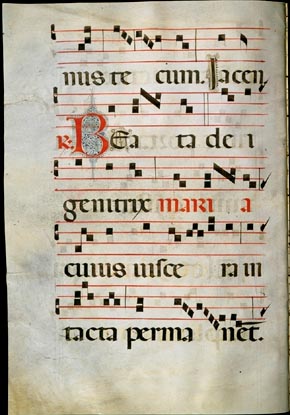 nus te cum. Iacen
R. BEa ta dei
genitrix maria
cuius uisce ra in
tacta perma net.